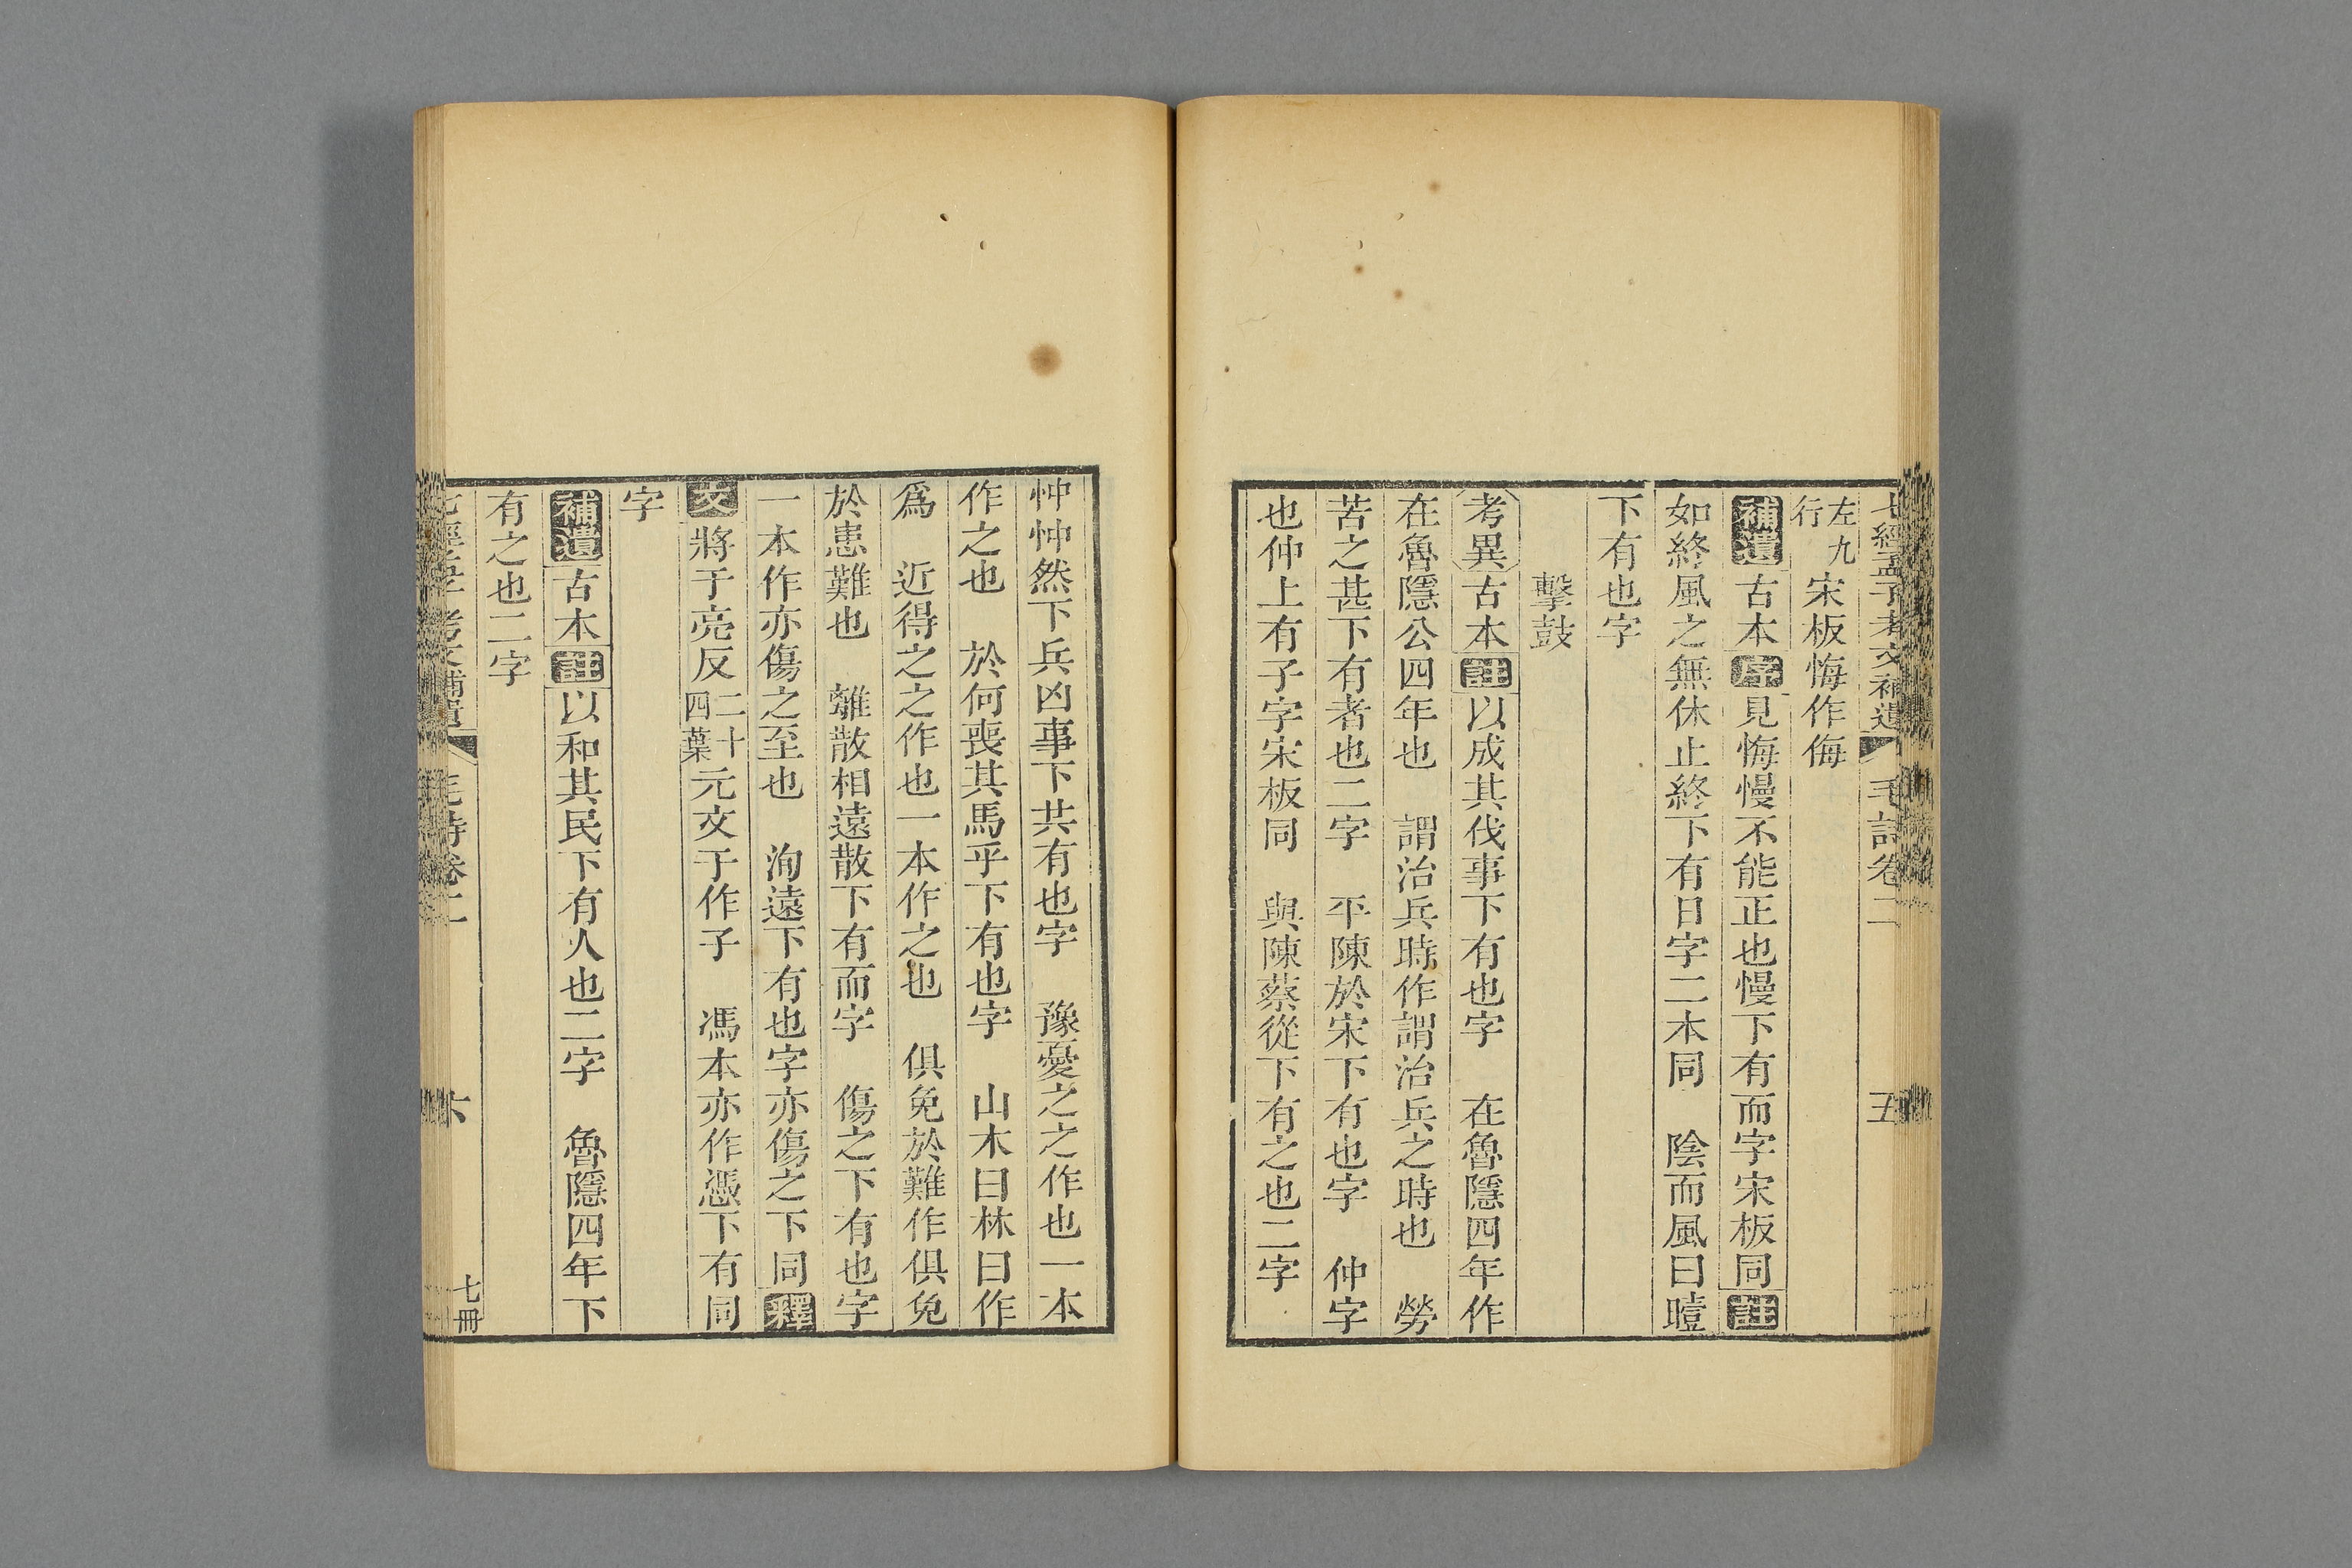 七經孟子考文補遺 毛詩卷二 五
左九行 宋板悔作侮
補遺 古本 序 見悔慢不能正也慢下有而字宋板同 註
如終風之無休止終下有日字二本同 陰而風曰曀
下有也字
擊鼓
考異 古本 註 以成其伐事下有也字 在魯隱四年作
在魯隱公四年也 謂治兵時作謂治兵之時也 勞
苦之甚下有者也二字 平陳於宋下有也字 仲字
也仲上有子字宋板同 與陳蔡從下有之也二字
忡忡然下兵凶事下共有也字 豫憂之之作也一本
作之也 於何喪其馬乎下有也字 山木曰林曰作
爲 近得之之作也一本作之也 俱免於難作俱免
於患難也 離散相遠散下有而字 傷之下有也字
一本作亦傷之至也 洵遠下有也字亦傷之下同 釋
文 將于亮反二十四葉元文于作子 馮本亦作憑下有同
字
補遺 古本 註 以和其民下有人也二字 魯隱四年下
有之也二字
毛詩卷二 六 七冊